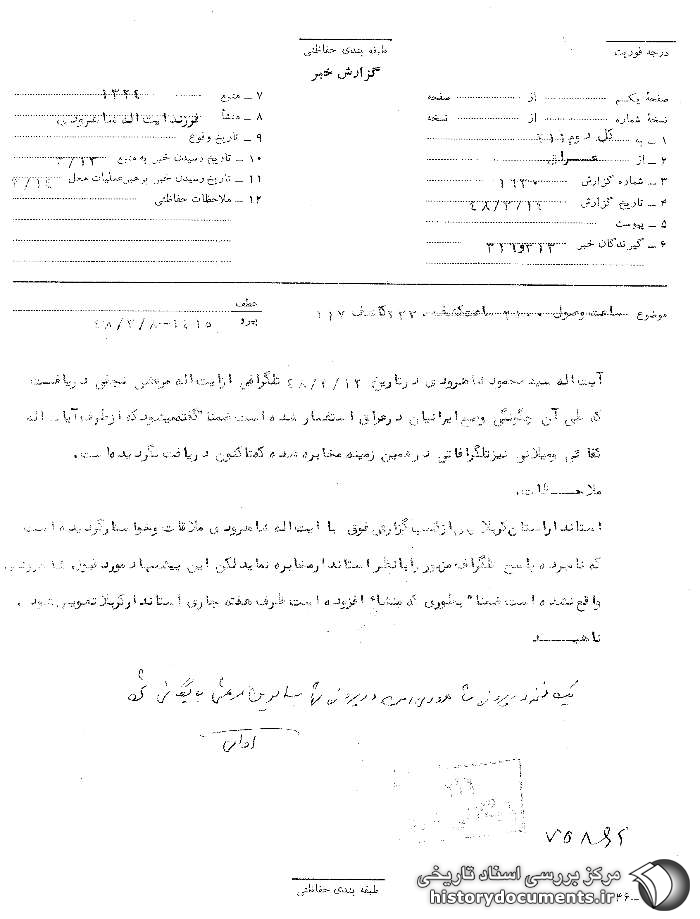 درجه فوریت
طبقه بندی حفاظتی
گزارش خبر
صفحهٔ یکم از صفحه
نسخهٔ شماره از نسخه
۱ ـ به کل دوم ۳۱۱
۲ ـ از عراق
۳ ـ شماره گزارش ۱۶۳۰
۴ ـ تاریخ گزارش ۴۸/۳/۱۶
۵ ـ پیوست
۶ ـ گیرندگان خبر ۳۱۳و۳۱۶
۷ ـ منبع ۱۳۲۴
۸ ـ منشأ فرزند ایت اله شاهرودی
۹ ـ تاریخ وقوع
۱۰ ـ تاریخ رسیدن خبر به منبع ۳/۱۳
۱۱ ـ تاریخ رسیدن خبر برهبر عملیات محل ۳/۱۴
۱۲ ـ ملاحظات حفاظتی
موضوع ساعت وصول ساعت کشف کاشف ۱۱۷
عطف
پیرو ۱۴۱۵-۴۸/۳/۸
آیت اله سید محمود شاهرودی در تاریخ تلگرافی از ایت اله مرعشی نجفی دریافت
که طی آن چگونگی وضع ایرانیان در عراق استفسار شده است ضمنا" گفته میشود که از طرف آیات اله
کفائی و میلانی نیز تلگرافاتی در همین زمینه مخابره شده که تاکنون دریافت نگردیده است .
ملاحـــظات.
استاندار استان کربلا پس از کسب گزارش فوق با ایت اله شاهرودی ملاقات و خواستار گردیده است
که نامبرده پاسخ تلگراف مزبور را با نظر استاندار مخابره نماید لکن این پیشنهاد مورد قبول شاهرودی
واقع نشده است ضمنا" بطوری که منشاء افزوده است ظرف هفته جاری استاندار کربلا تعویض میشود .
ناهیـــد
یک نسخه در پرونده شاهرودی و در پرونده
۷۵۸۶۲
طبقه بندی حفاظتی
مرکز بررسی اسناد تاریخی
historydocuments.ir